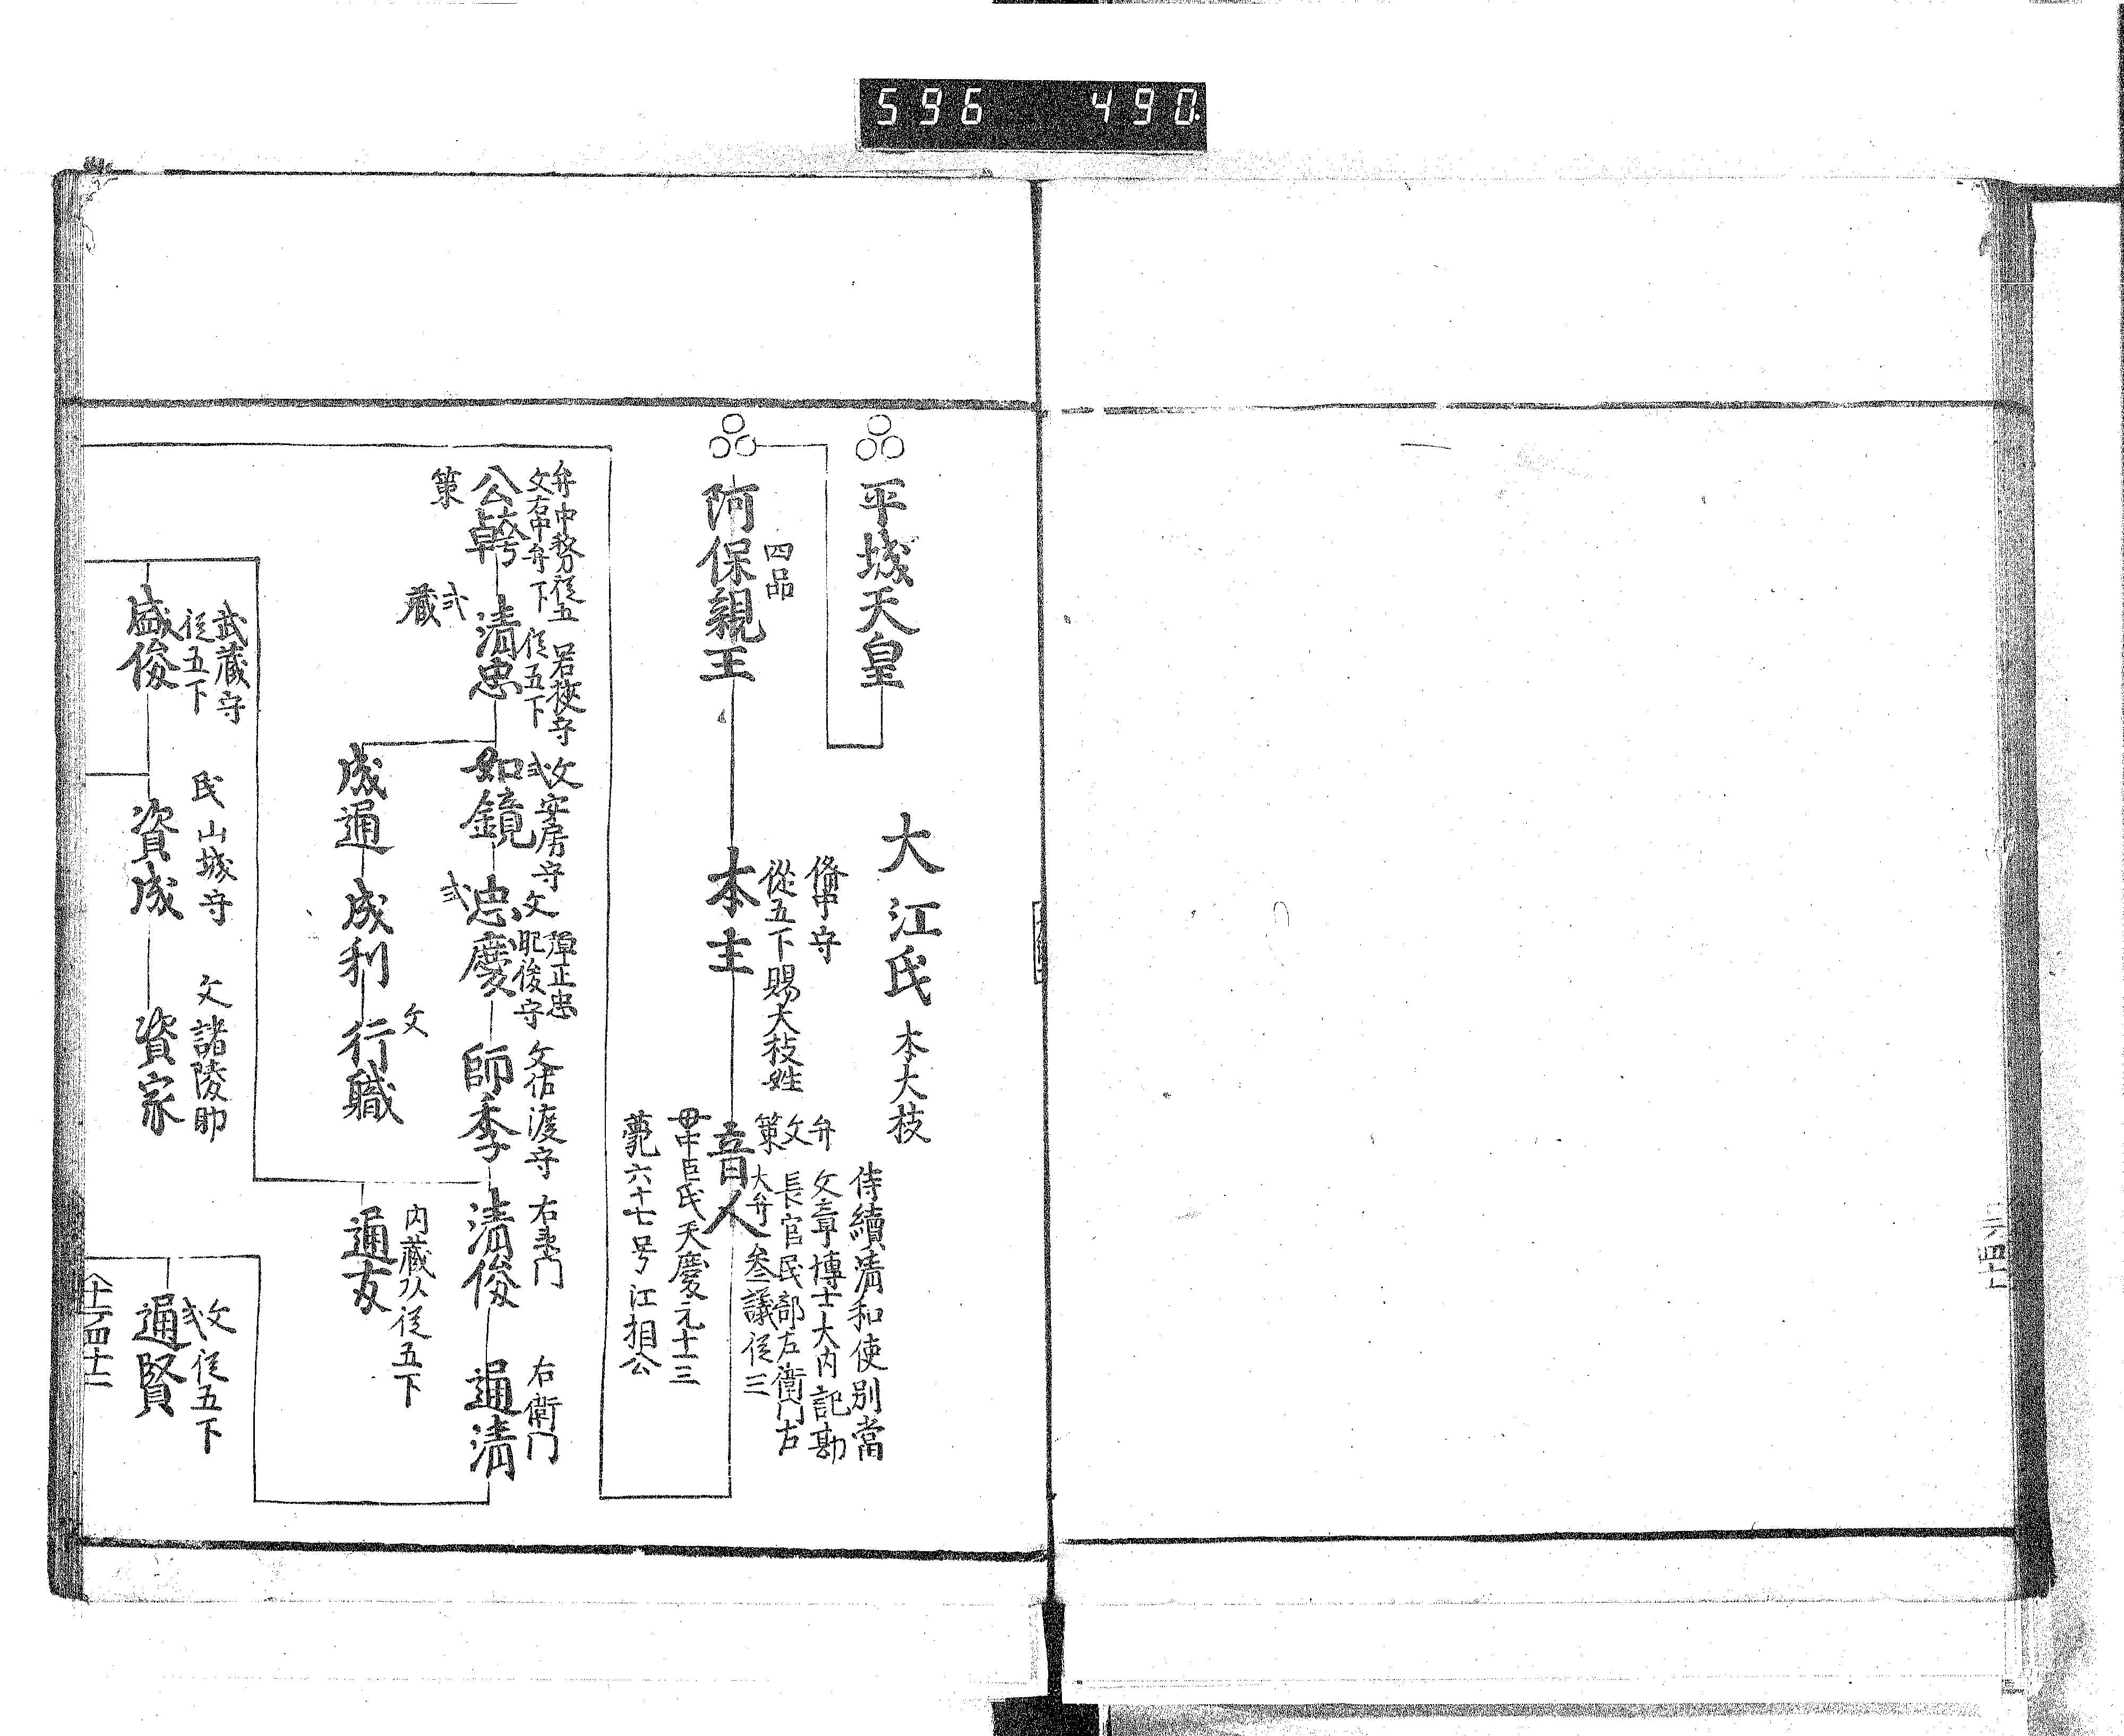 596 490
大江氏 本大枝
平城天皇
阿保親王
四品
本主
備中守
從五下賜大枝姓
音人
弁
文
策
侍續清和使別當
文章博士大内記勘
長官民部左衛門右
大弁参議従三
母中臣氏天慶元十三
薨六十七号江相公
公幹
弁中務従五
文右中弁下
策
清忠
若狭守
従五下
弐
蔵
如鏡
文安房守
弐
忠慶
文弾正忠
肥後守
弐
師季
文佐渡守
清俊
右衛門
通清
右衛門
成通
成利
行職
文
通友
内蔵次従五下
盛俊
武蔵守
従五下
資成
民山城守
資家
文諸陵助
通賢
文従五下
弐